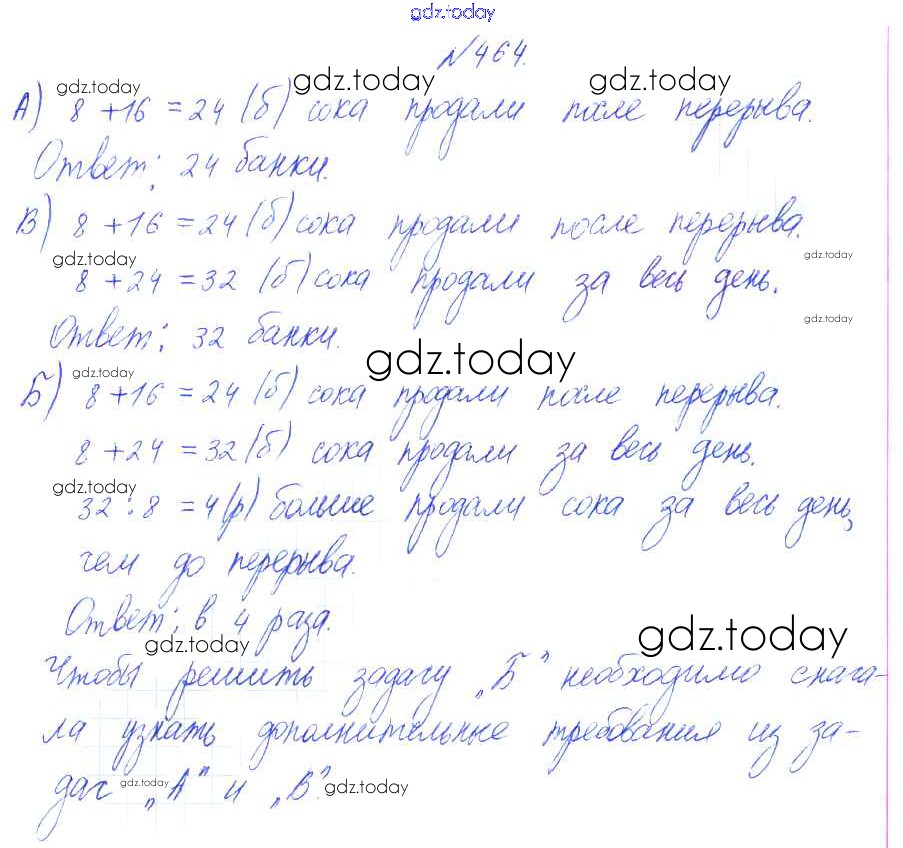 gdz.today
№464.
gdz.today gdz.today gdz.today
А) 8 + 16 = 24 (б) сока продали после перерыва.
Ответ: 24 банки.
В) 8 + 16 = 24 (б) сока продали после перерыва.
gdz.today gdz.today
8 + 24 = 32 (б) сока продали за весь день.
gdz.today
Ответ: 32 банки.
gdz.today
gdz.today
Б) 8 + 16 = 24 (б) сока продали после перерыва.
8 + 24 = 32 (б) сока продали за весь день.
gdz.today
32 : 8 = 4 (р) больше продали сока за весь день,
чем до перерыва.
Ответ: в 4 раза.
gdz.today gdz.today
Чтобы решить задачу „Б" необходимо снача-
ла узнать дополнительные требования из за-
дач gdz.today „А" и „В". gdz.today